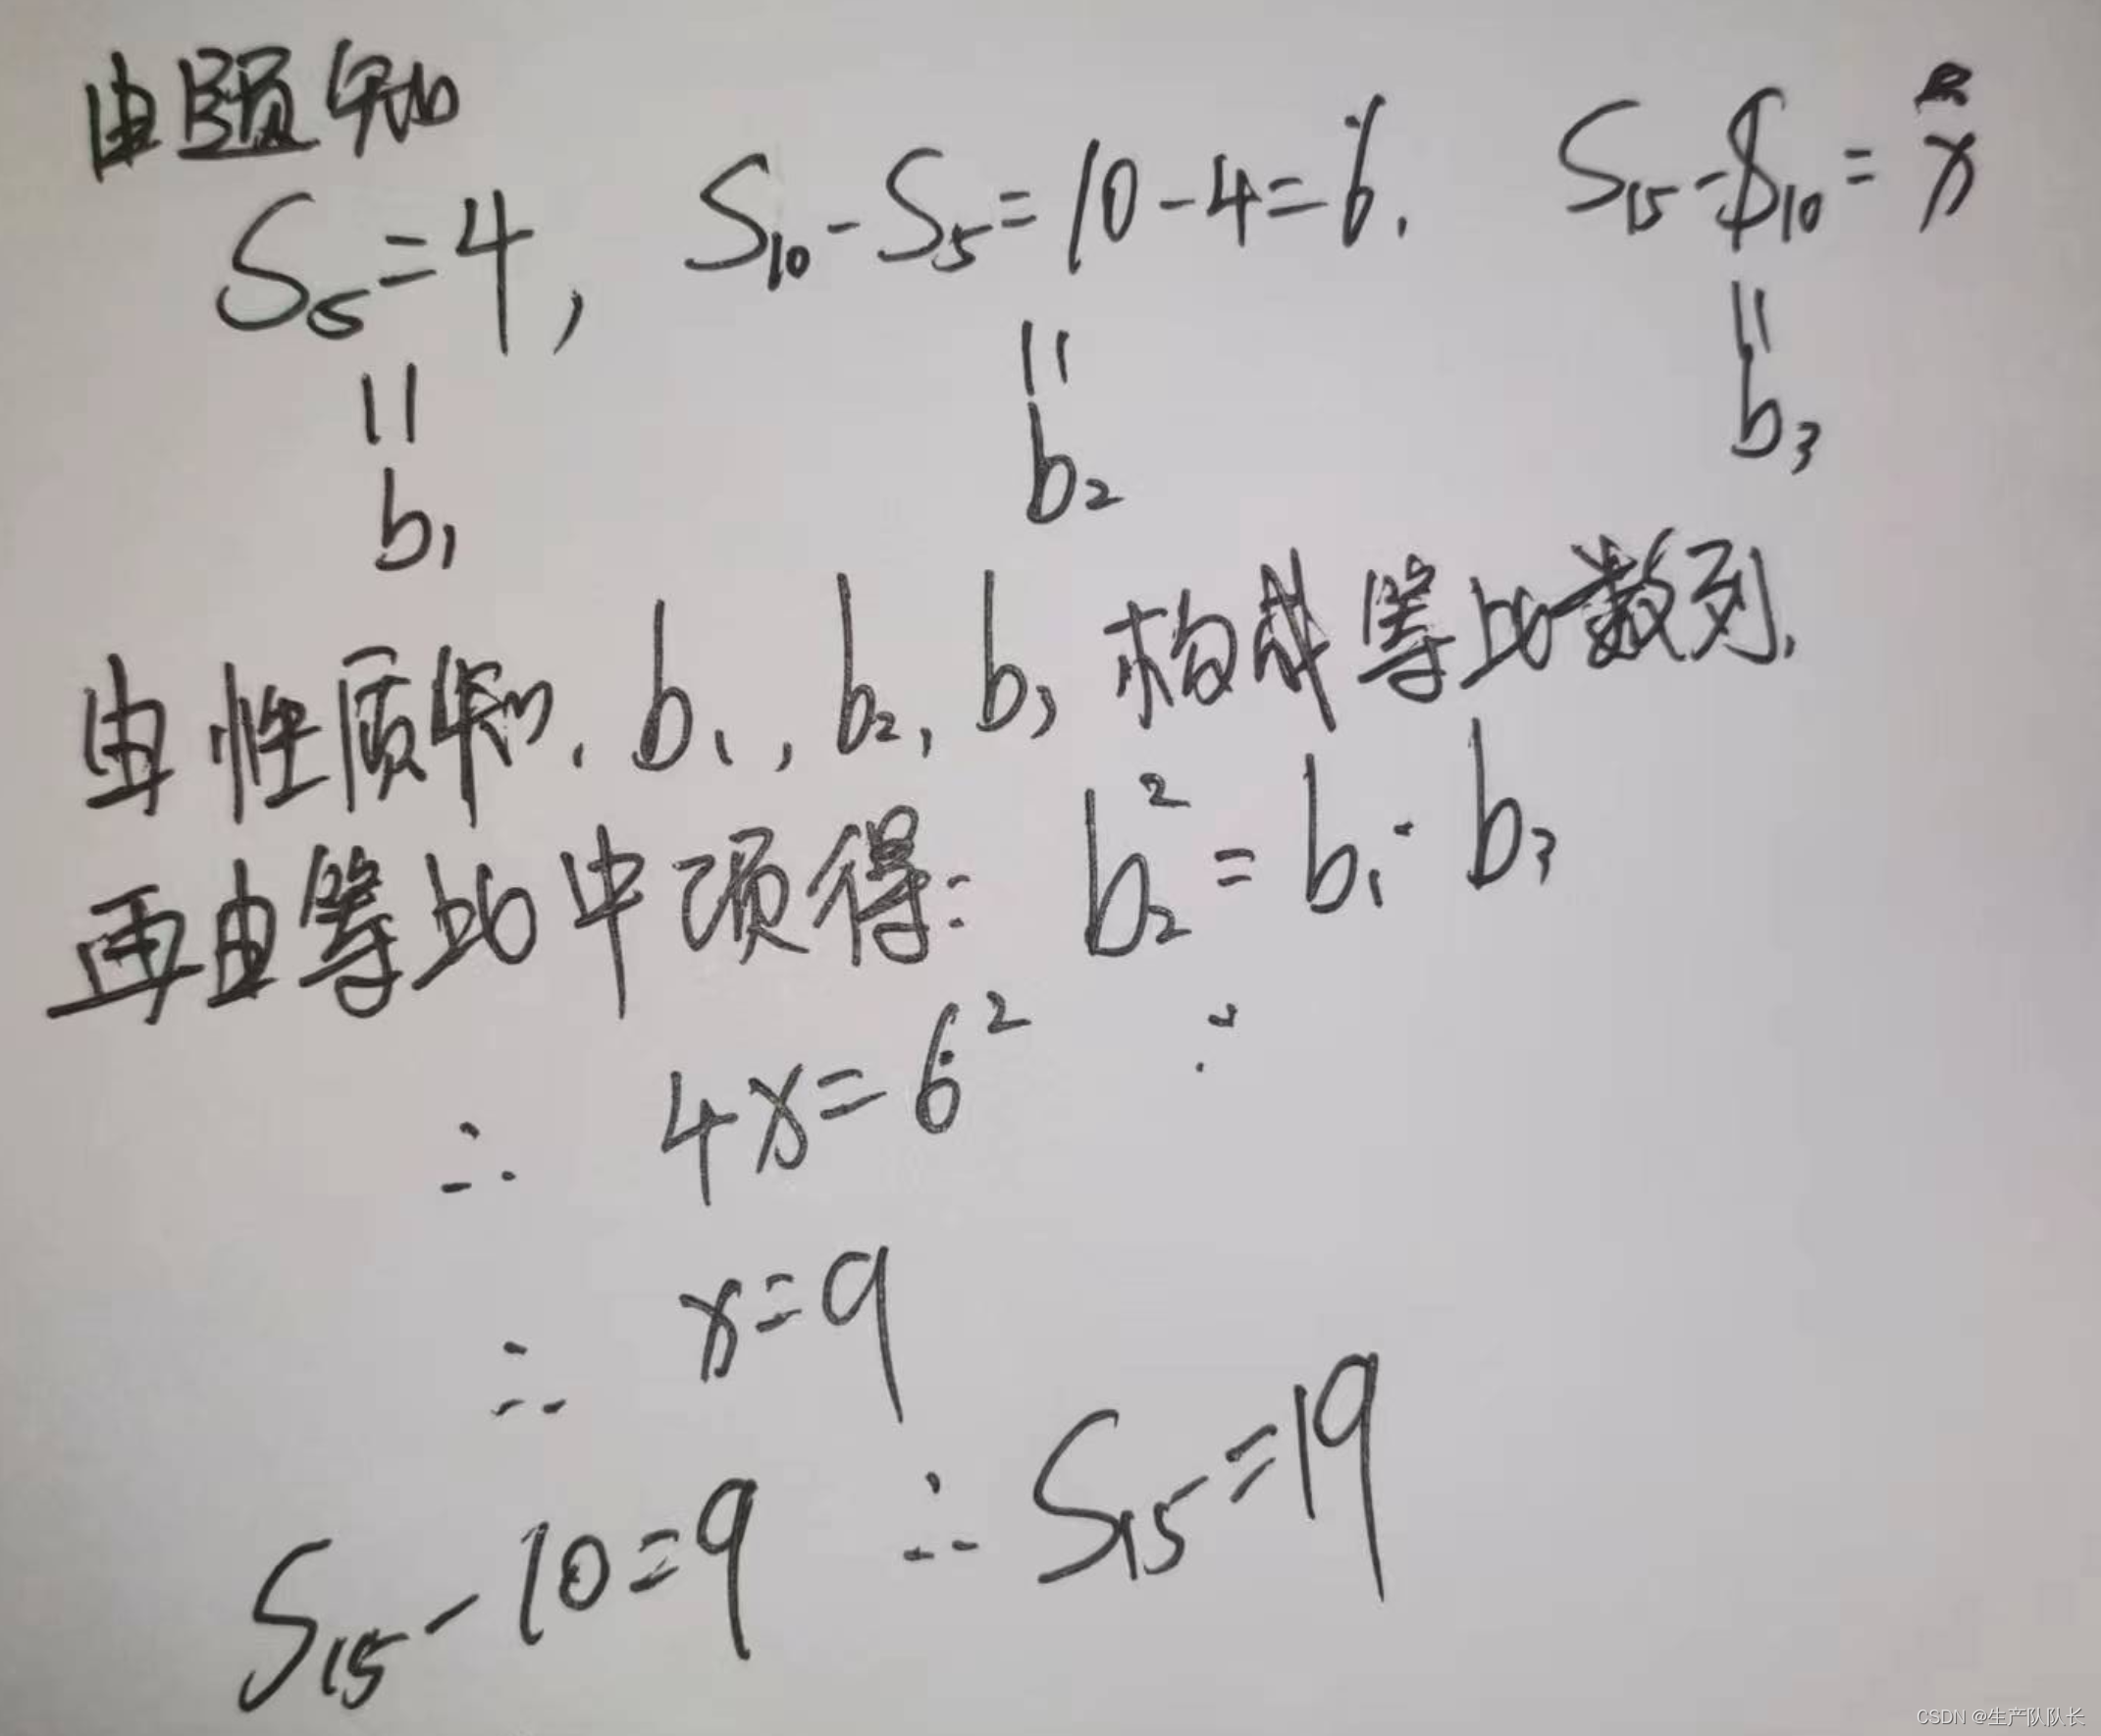 由题知
S₅=4, S₁₀-S₅=10-4=6. S₁₅-S₁₀=x
|| || ||
b₁ b₂ b₃
由性质知, b₁, b₂, b₃ 构成等比数列,
再由等比中项得: b₂²=b₁·b₃
∴ 4x=6²
∴ x=9
S₁₅-10=9 ∴ S₁₅=19
CSDN @生产队队长